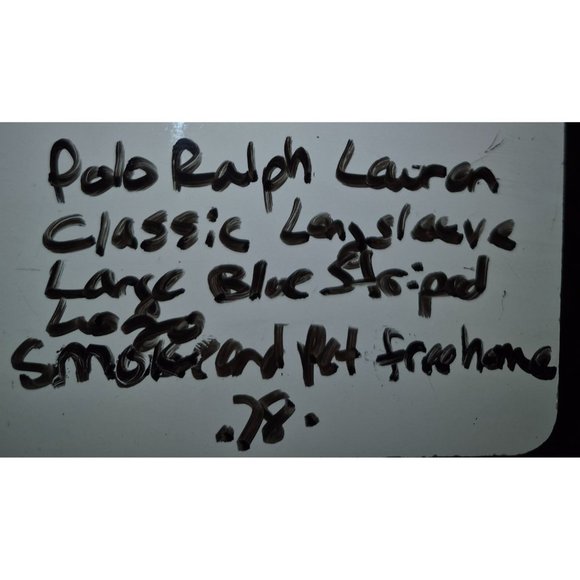 Polo Ralph Lauren
Classic Longsleeve
Large Blue Striped
Logo
Smoke and Pet free home
.78.